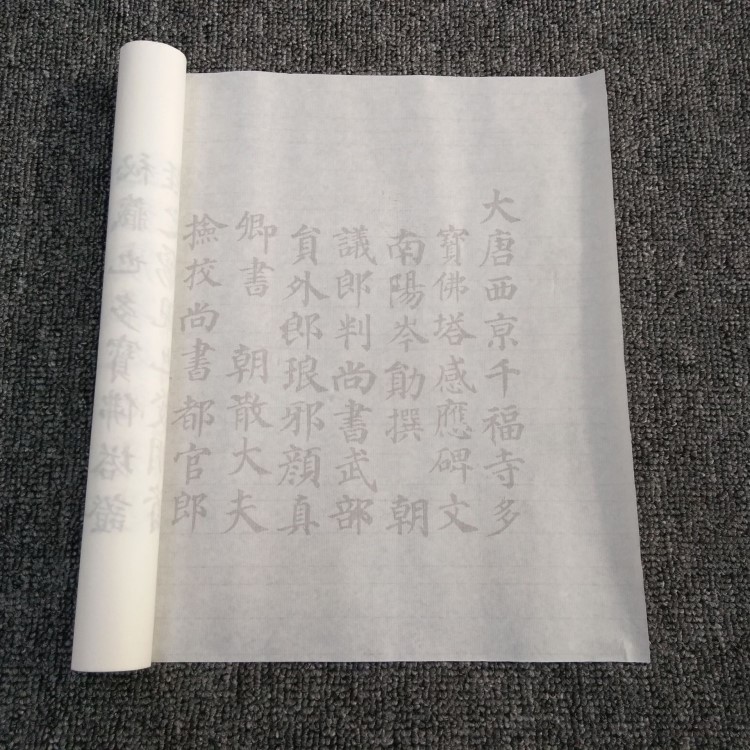 大唐西亰千福寺多
寳佛塔感應碑文
南陽岑勛撰 朝
議郎判尚書武部
貟外郎琅邪顔真
卿書 朝散大夫
撿挍尚書都官郎
秘藏也多寶佛塔證